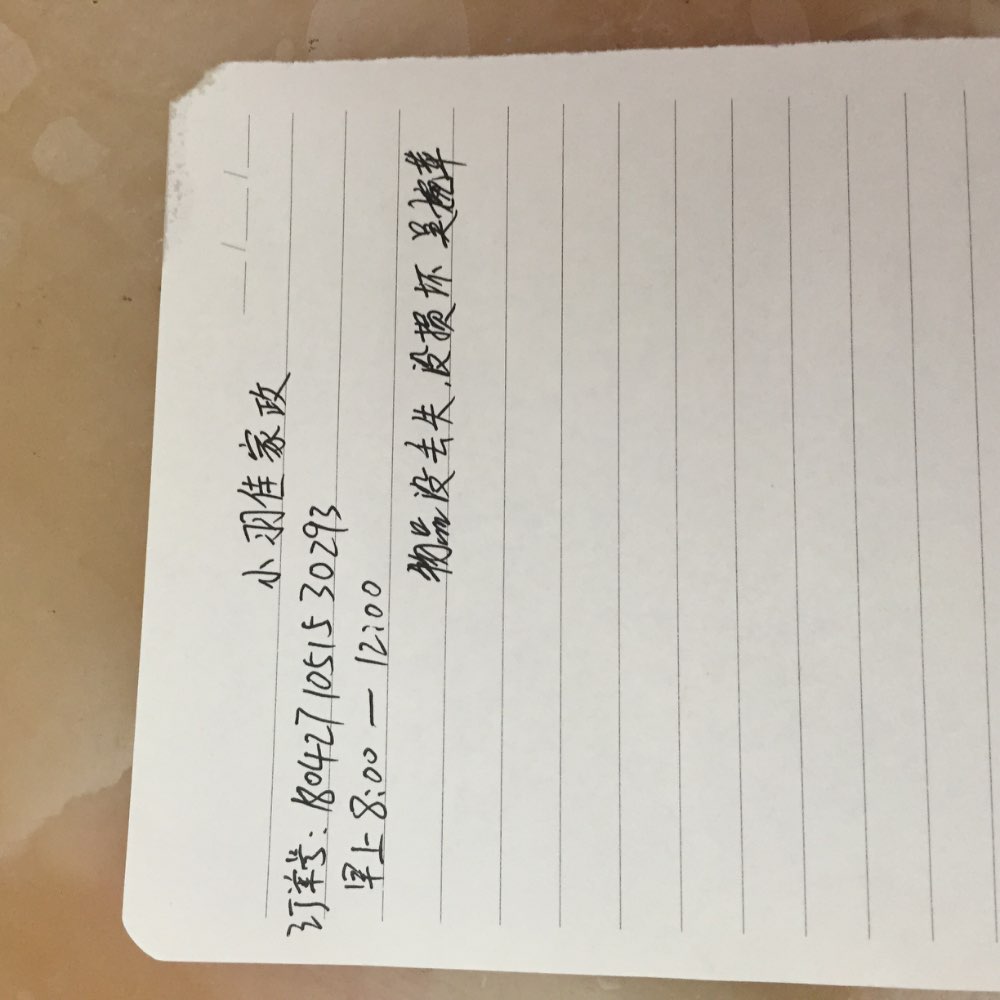 小羽佳家政
订单号:1804271051530293
早上8:00—12:00
物品没丢失,没损坏 吴